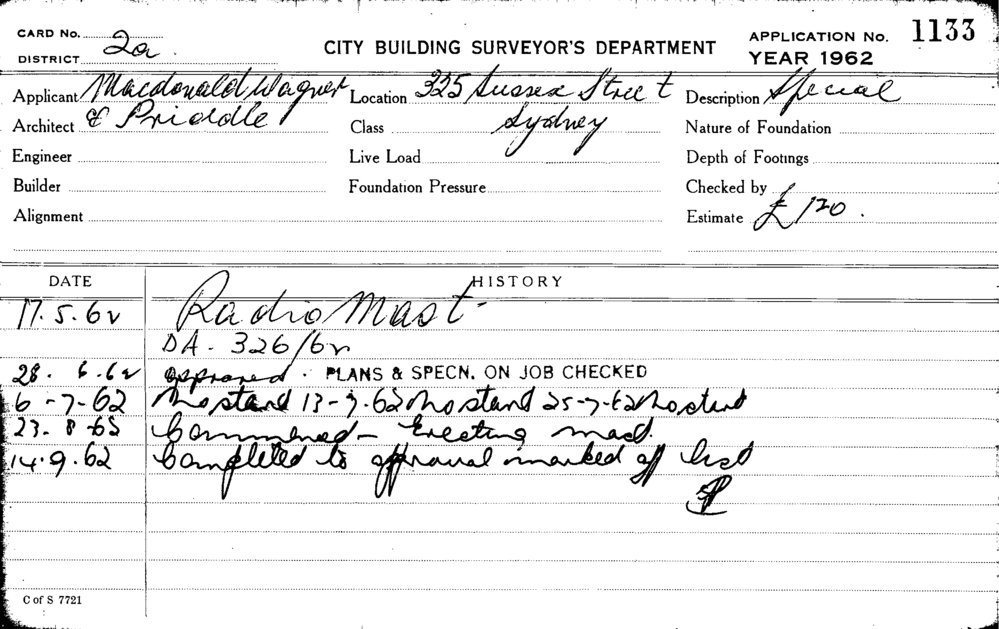 CARD No. 2a
DISTRICT
CITY BUILDING SURVEYOR'S DEPARTMENT
APPLICATION No. 1133
YEAR 1962
Applicant Macdonald Wagner Location 325 Sussex Street Description Special
Architect & Priddle Class Sydney Nature of Foundation
Engineer Live Load Depth of Footings
Builder Foundation Pressure Checked by
Alignment Estimate £120.
DATE HISTORY
17.5.62 Radio Mast
DA. 326/62
28.6.62 approved. PLANS & SPECN. ON JOB CHECKED
6-7-62 No start 13-7-62 No start 25-7-62 No start
23.8-62 Commenced - Erecting mast.
14.9.62 Completed to approval marked off list
C of S 7721